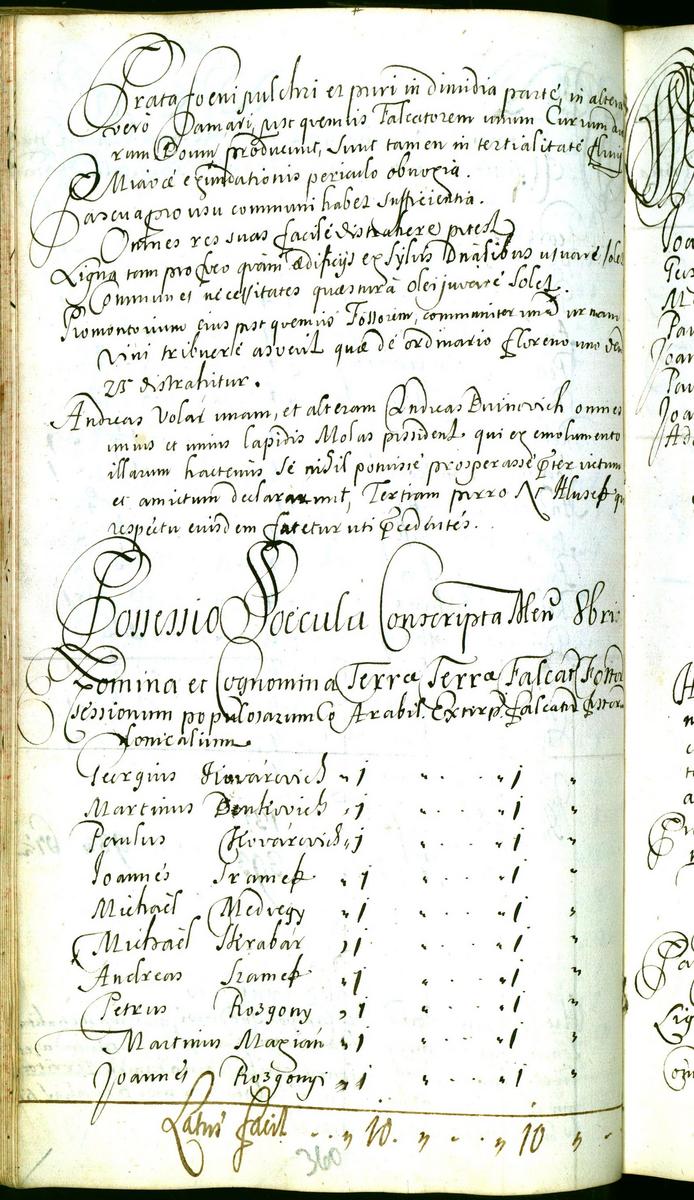 Prata foeni pulchri et puri in dimidia parte, in altera
vero Damari, ust quemuis Falcatorem unum Currum
rum Boum producunt, sunt tamen in tertialitate fluvij
Miavæ exundationis periculo obnoxia.
Pascua pro usu communi habet sufficientia.
Omnes res suas facile distrahere potest
Ligna tam pro foco quam ædificijs ex sylvis Dnalibus usuare solet
Communes necessitates quæstura olei juvare solet.
Promontorium eius ust quemuis Fossorem, communiter unā urnam
vini tribuere asverit quæ de ordinario floreno uno den
25 distrahitur.
Andreas Volar unam, et alteram Andreas Buinovich omnes
unius et unius lapidis Molas possident qui ex emolumento
illarum hactenus se nihil potuisse prosperasse præter victum
et amictum declararunt, Tertiam porro N Hlusek qui
respectu eiusdem fatetur uti præcedentes.
Possessio Poecula Conscripta Men 8bri
Nomina et Cognomina Terræ Terræ Falcat Fossor
sessionum populosarum Co Arabil. Extirp. falcatur fossor
lonicalium
Georgius Kovarovich „ 1 „ . . „ 1 „
Martinus Benkovich „ 1 „ . . „ 1 „
Paulus Kovárovich „ 1 „ . . „ 1 „
Joannes Sramek „ 1 „ . . „ 1 „
Michaël Medvegy „ 1 „ . . „ 1 „
Michaël Skrabár „ 1 „ . . „ 1 „
Andreas Sramek „ 1 „ . . „ 1 „
Petrus Rozgony „ 1 „ . . „ 1 „
Martinus Maxian „ 1 „ . . „ 1 „
Joannes Rozgonyi „ 1 „ . . „ 1 „
Latus facit . . „ 10. „ . . „ 10 „ .
360